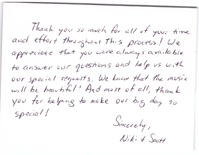 Thank you so much for all of your time
and effort throughout this process! We
appreciate that you were always available
to answer our questions and help us with
our special requests. We know that the music
will be beautiful! And most of all, thank
you for helping to make our big day so
special!
Sincerely,
Niki & Scott